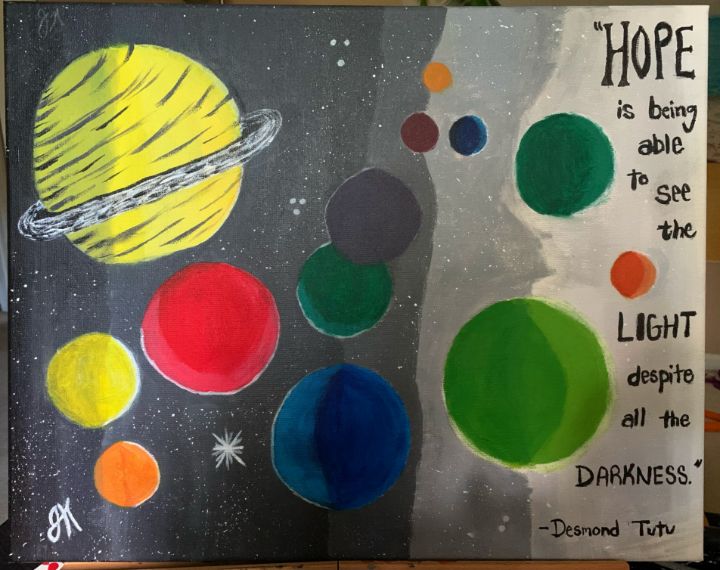 "HOPE
is being
able
to see
the
LIGHT
despite
all the
DARKNESS."
-Desmond Tutu